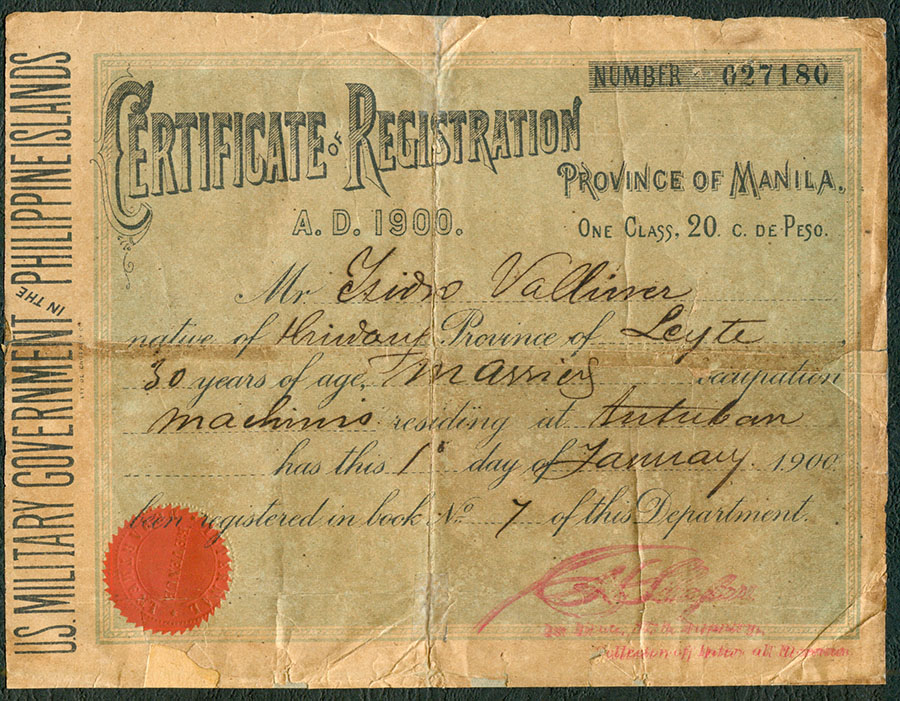 U.S. MILITARY GOVERNMENT IN THE PHILIPPINE ISLANDS
NUMBER 027180
CERTIFICATE OF REGISTRATION
PROVINCE OF MANILA.
A. D. 1900.
ONE CLASS, 20 C. DE PESO.
Mr Isidro
native of Province of Leyte
30 years of age, occupation
machinis residing at Tutuban
has this 1º day of January 1900
been registered in book No 7 of this Department.